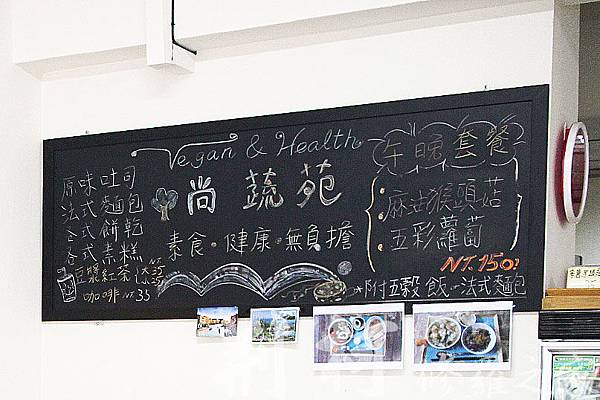 Vegan & Health
尚蔬苑
素食・健康・無負擔
原味吐司
法式麵包
各式餅乾
各式素糕
豆漿紅茶 大35 小25
咖啡 NT.35
午晚套餐
麻油猴頭菇
五彩蘿蔔
NT.150!
*附五穀飯、法式麵包